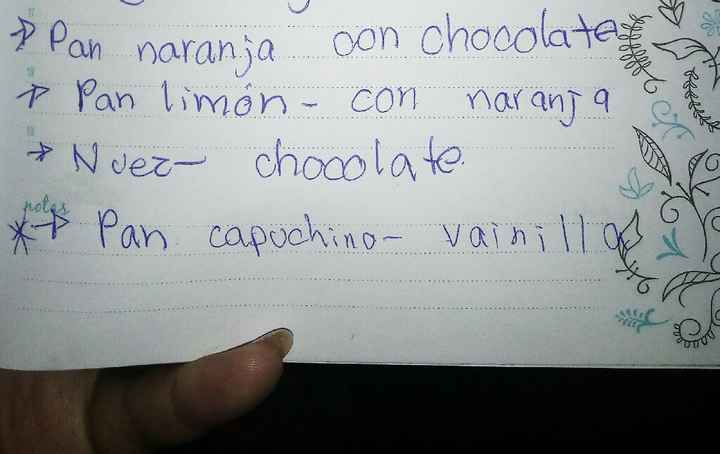 → Pan naranja con chocolate
→ Pan limón - con naranja
→ Nuez - chocolate.
notes
*→ Pan capuchino - vainilla